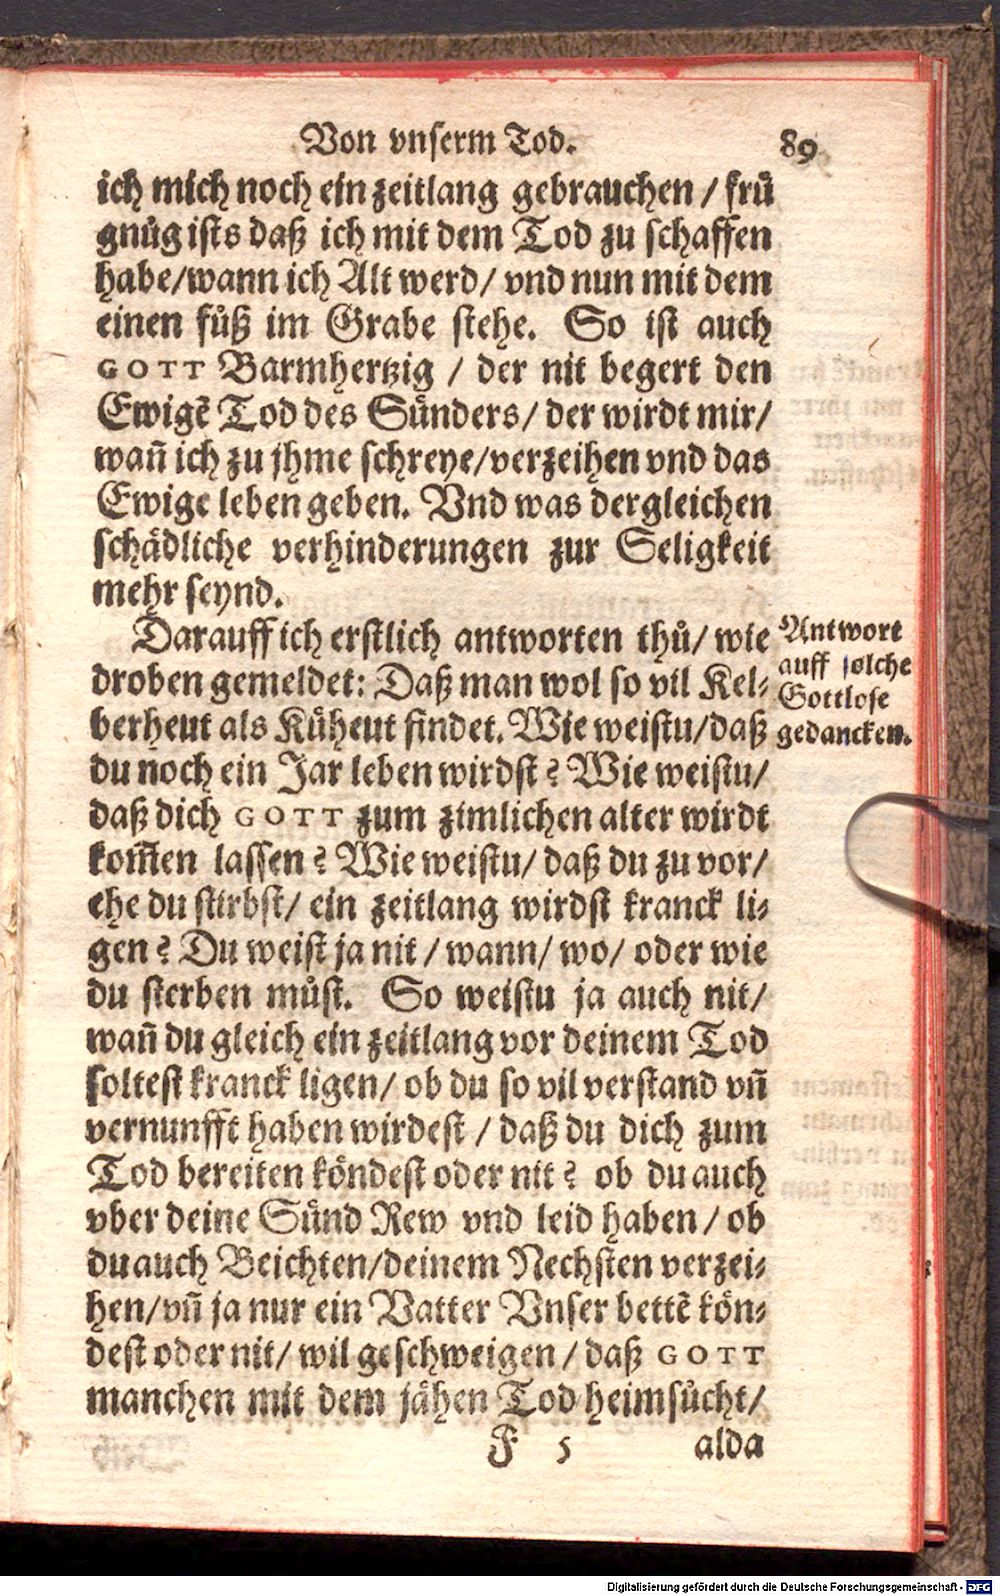 Von vnserm Tod. 89
ich mich noch ein zeitlang gebrauchen / frů
gnůg ists daß ich mit dem Tod zu schaffen
habe/wann ich Alt werd/ vnd nun mit dem
einen fůß im Grabe stehe. So ist auch
GOTT Barmhertzig / der nit begert den
Ewigẽ Tod des Sünders/ der wirdt mir/
wañ ich zu jhme schreye/verzeihen vnd das
Ewige leben geben. Vnd was dergleichen
schädliche verhinderungen zur Seligkeit
mehr seynd.
Darauff ich erstlich antworten thů/ wie
droben gemeldet: Daß man wol so vil Kel-
berheut als Küheut findet. Wie weistu/daß
du noch ein Jar leben wirdst? Wie weistu/
daß dich GOTT zum zimlichen alter wirdt
kom̃en lassen? Wie weistu/ daß du zu vor/
ehe du stirbst/ ein zeitlang wirdst kranck li-
gen? Du weist ja nit / wann/ wo/ oder wie
du sterben můst. So weistu ja auch nit/
wañ du gleich ein zeitlang vor deinem Tod
soltest kranck ligen/ ob du so vil verstand vñ
vernunfft haben wirdest / daß du dich zum
Tod bereiten köndest oder nit? ob du auch
vber deine Sünd Rew vnd leid haben / ob
du auch Beichten/deinem Nechsten verzei-
hen/vñ ja nur ein Vatter Vnser bettẽ kön-
dest oder nit/ wil geschweigen / daß GOTT
manchen mit dem jähen Tod heimsůcht/
F 5 alda
Antwort
auff solche
Gottlose
gedancken.
Digitalisierung gefördert durch die Deutsche Forschungsgemeinschaft - DFG